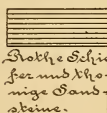 Rothe Schie
fer und tho-
nige Sand-
steine.